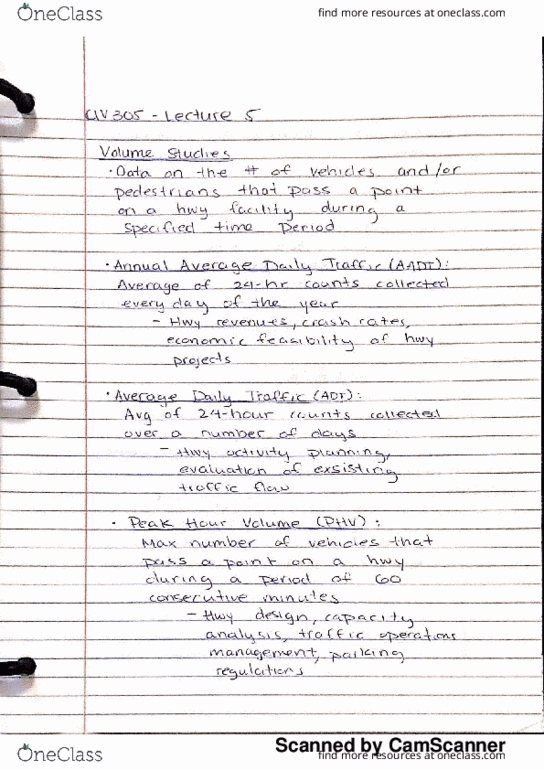 OneClass
find more resources at oneclass.com
CIV 305 - Lecture 5
Volume Studies
· Data on the # of vehicles and/or
pedestrians that pass a point
on a hwy facility during a
specified time period
· Annual Average Daily Traffic (AADT):
Average of 24-hr counts collected
every day of the year
- Hwy revenues, crash rates,
economic feasibility of hwy
projects
· Average Daily Traffic (ADT):
Avg of 24-hour counts collected
over a number of days
- Hwy activity planning,
evaluation of exsisting
traffic flow
· Peak Hour Volume (PHV):
Max number of vehicles that
pass a point on a hwy
during a period of 60
consecutive minutes
- Hwy design, capacity
analysis, traffic operations
management, parking
regulations
Scanned by CamScanner
OneClass
find more resources at oneclass.com